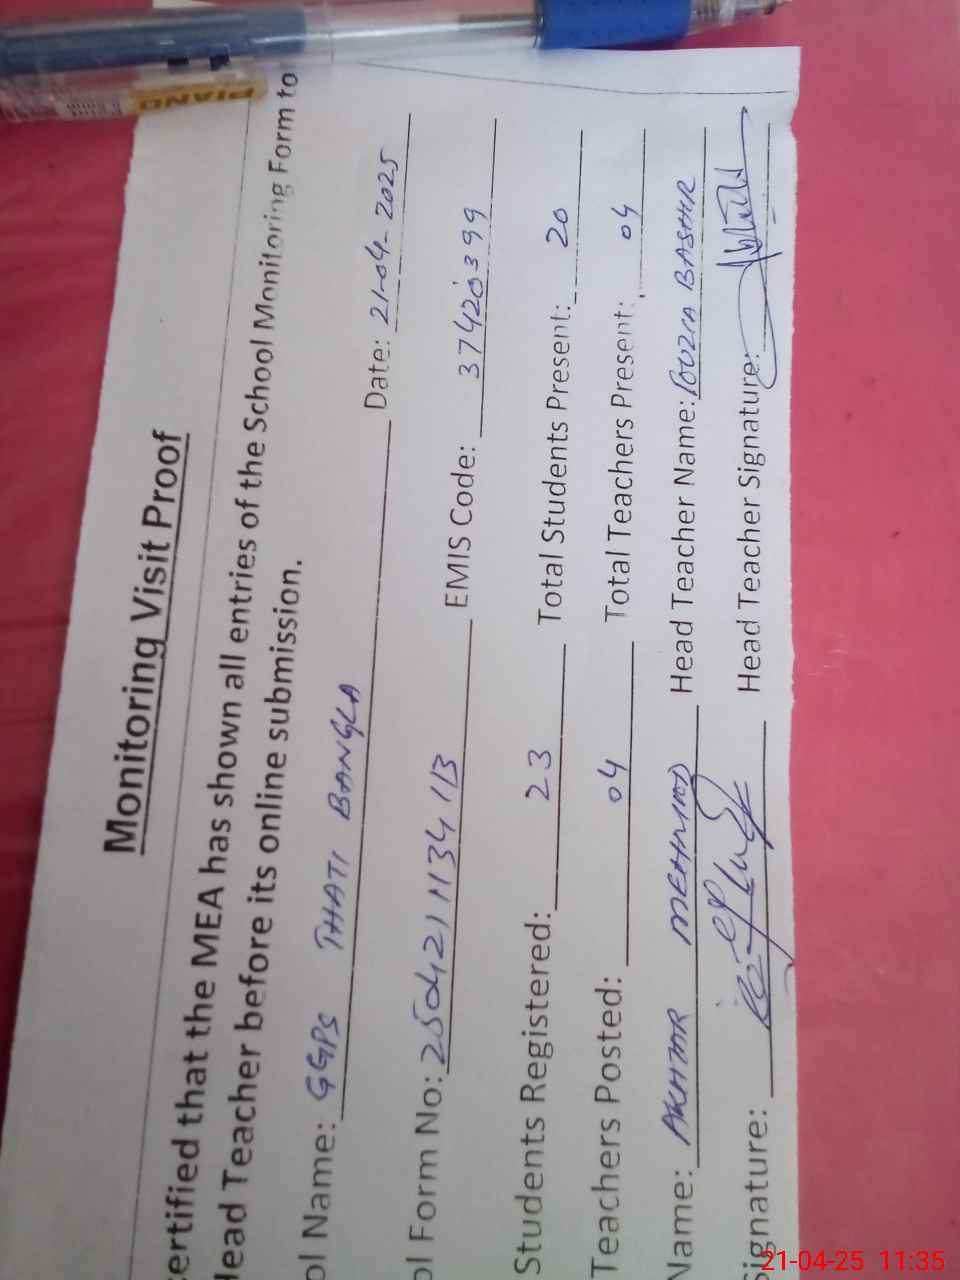 PIANO
Monitoring Visit Proof
ertified that the MEA has shown all entries of the School Monitoring Form to
Head Teacher before its online submission.
ol Name: GGPS THATI BANGLA Date: 21-04-2025
ol Form No: 2504211134113 EMIS Code: 37420399
Students Registered: 23 Total Students Present: 20
Teachers Posted: 04 Total Teachers Present: 04
Name: AKHTAR MEHMOOD Head Teacher Name: FOUZIA BASHIR
Signature: Head Teacher Signature:
21-04-25 11:35